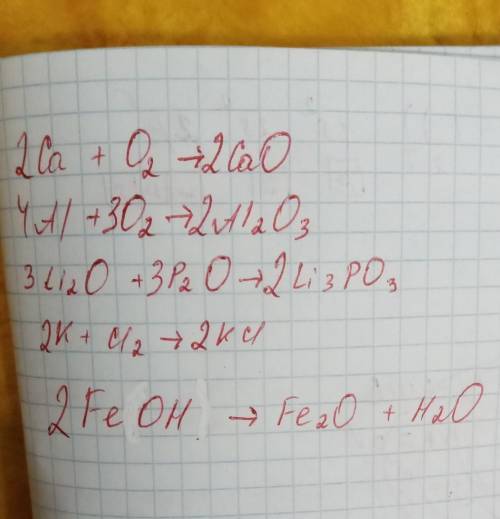 2Ca + O₂ → 2CaO
4Al + 3O₂ → 2Al₂O₃
3Li₂O + 3P₂O → 2Li₃PO₃
2K + Cl₂ → 2KCl
2Fe(OH) → Fe₂O + H₂O